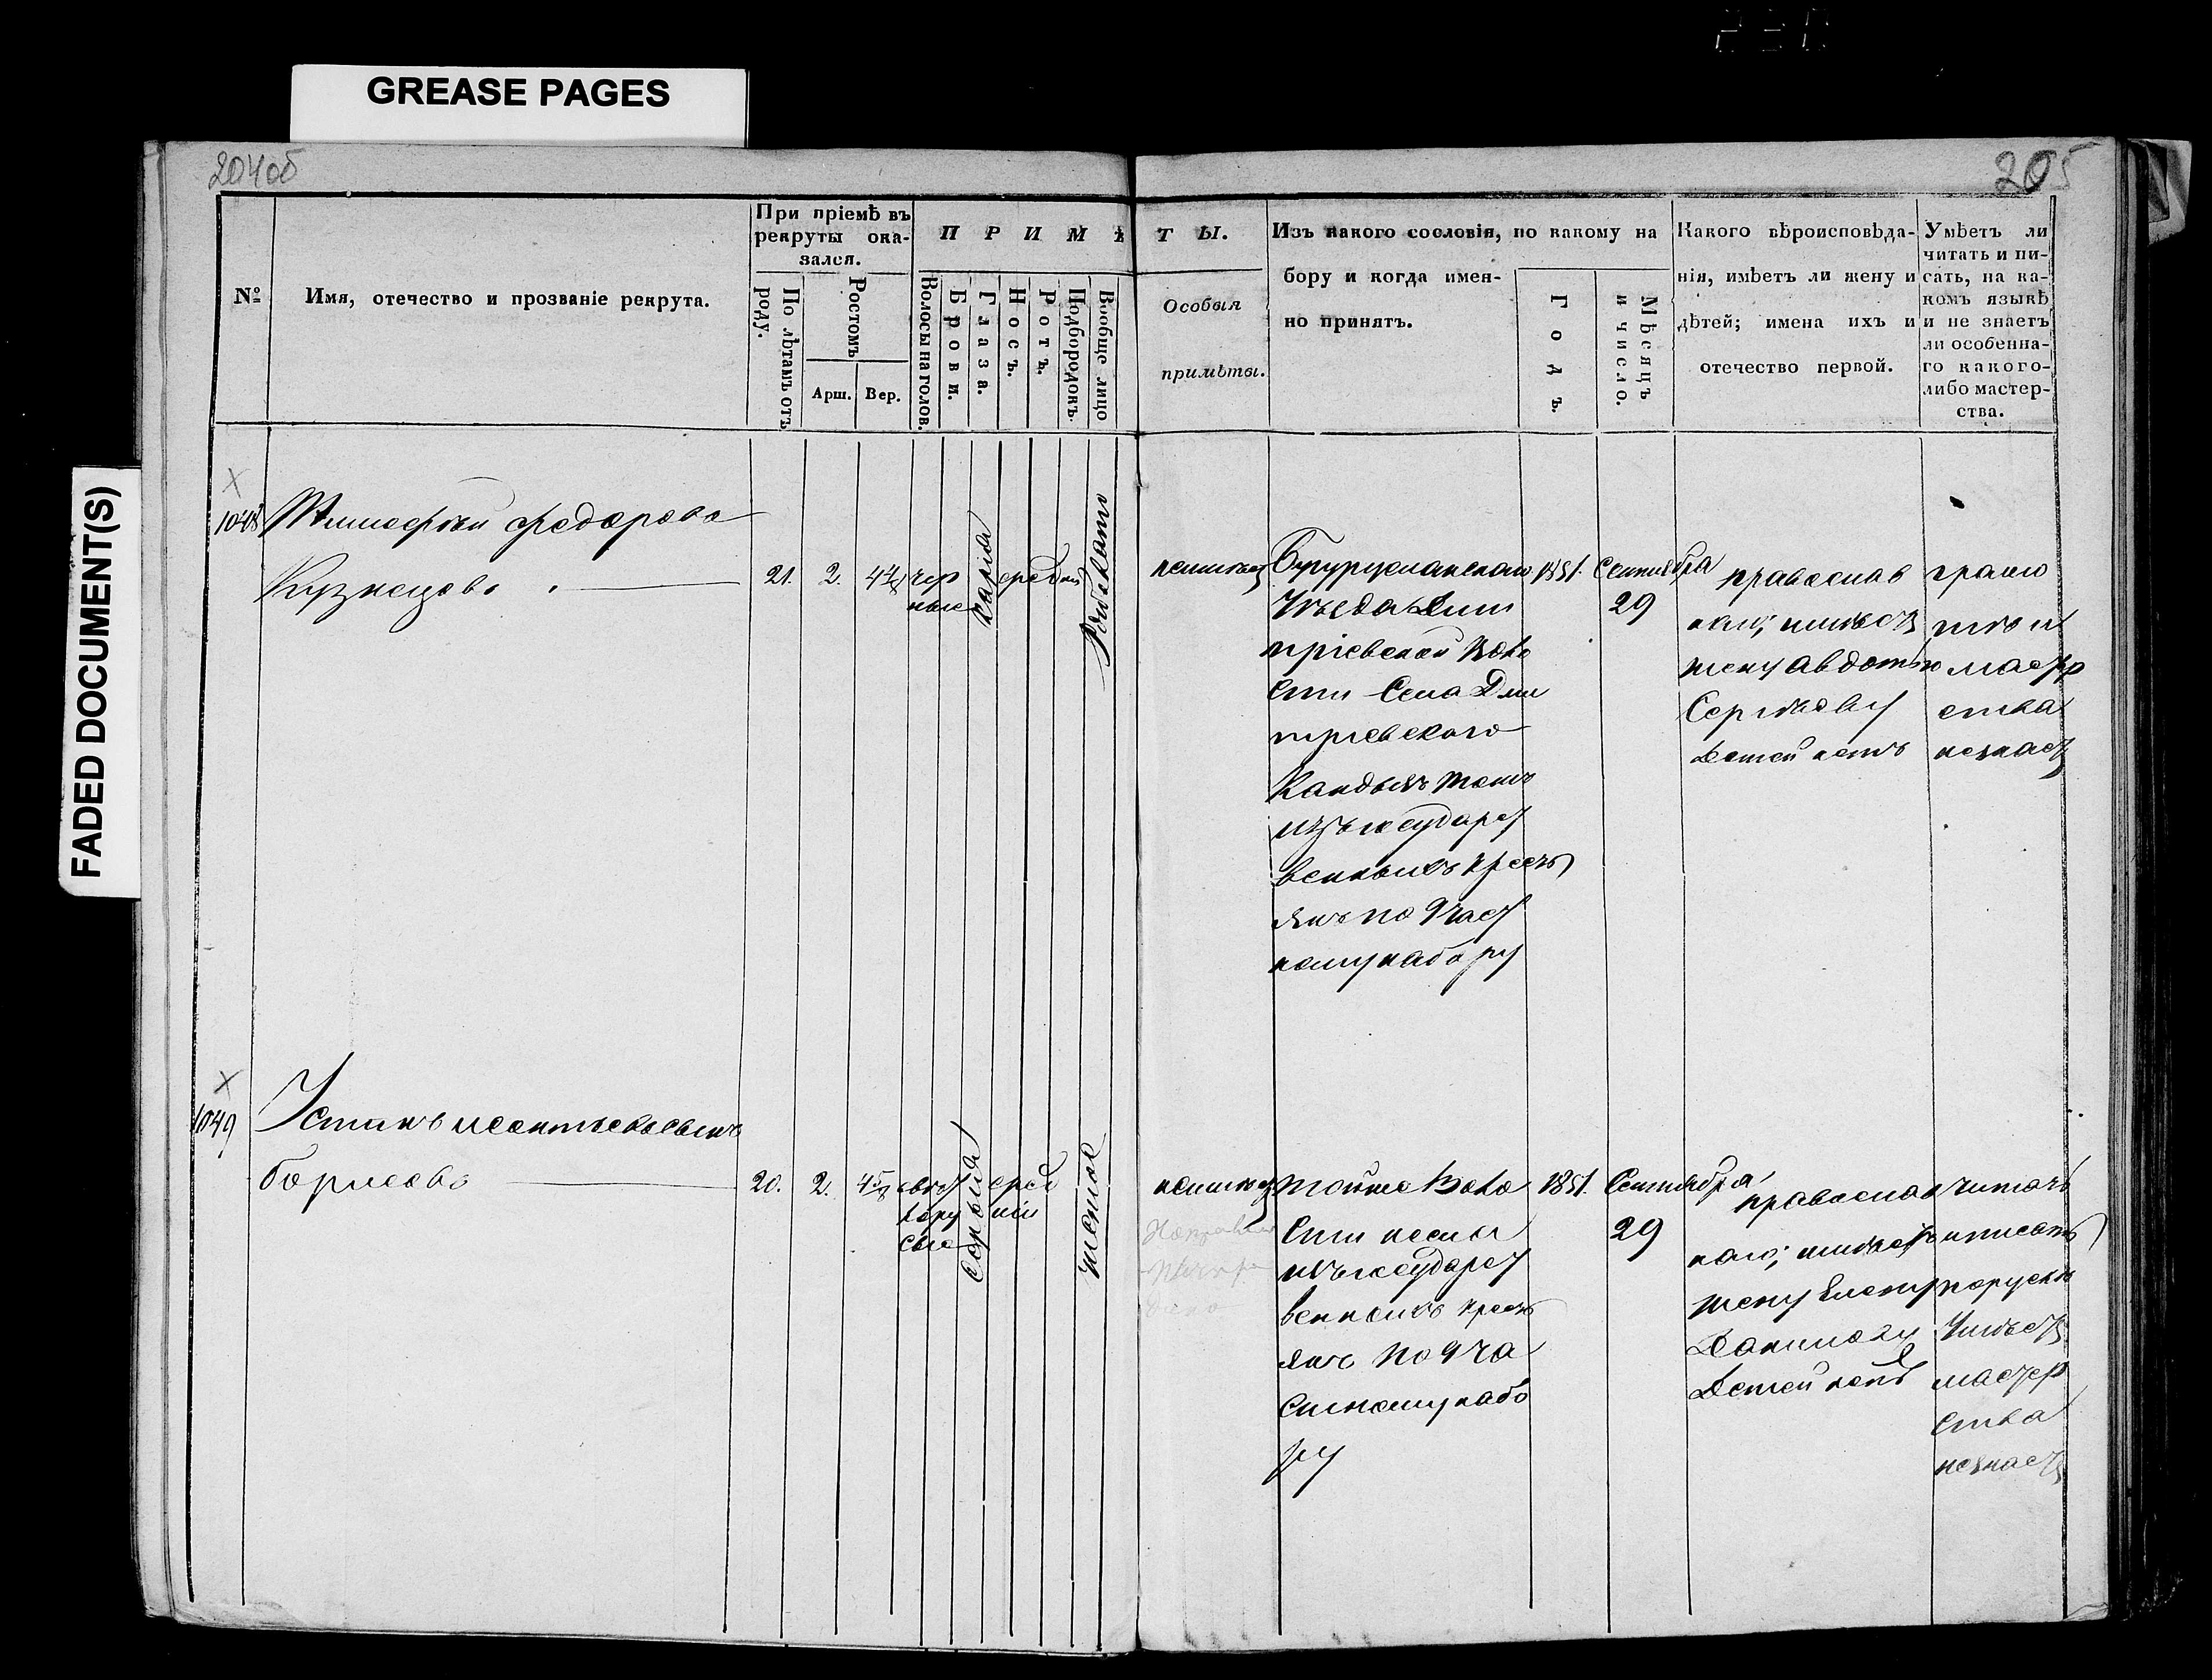 GREASE PAGES
FADED DOCUMENT(S)
204об
205
№
Имя, отечество и прозваніе рекрута.
При пріемѣ въ
рекруты ока-
зался.
По лѣтамъ отъ
роду.
Ростомъ
Арш.
Вер.
ПРИМѢТЫ.
Волосы на голов.
Брови.
Глаза.
Носъ.
Ротъ.
Подбородокъ.
Вообще лицо
Особыя
примѣты.
Изъ какого сословія, по какому на
бору и когда имен-
но принятъ.
Годъ.
Мѣсяцъ
и число.
Какого вѣроисповѣда-
нія, имѣетъ ли жену и
дѣтей; имена ихъ и
отечество первой.
Умѣетъ ли
читать и пи-
сать, на ка-
комъ языкѣ
и не знаетъ
ли особенна-
го какого-
либо мастер-
ства.
1048
Тимофей Федорова
Кузнецовъ
21.
2.
4
чер
ные
карія
средній
рябовато
неимѣетъ
Бугурусланскаго
Уѣзда Дми
тріевской Воло
сти Села Дми
тріевского
Кандызъ тожъ
изъ государст
венныхъ кресть
янъ по 9 част
ному набору
1851.
Сентября
29
православ
наго, имѣетъ
жену Авдотью
Сергѣеву
Детей нетъ
грамо
тѣ и
мастер
ства
незнаетъ
1049
Устинъ Леонтьевъ сынъ
Борисовъ
20.
2.
4
свет
лору
сые
серыя
сред
ній
неимѣетъ
тойже Воло
сти и села
изъ государст
венныхъ кресть
янъ по 9 ча
стному набо
ру
1851.
Сентября
29
православ
наго, имѣетъ
жену Елену
Данилову
Детей нетъ
читать
и писать
поруски
Умѣетъ
мастер
ства
незнаетъ